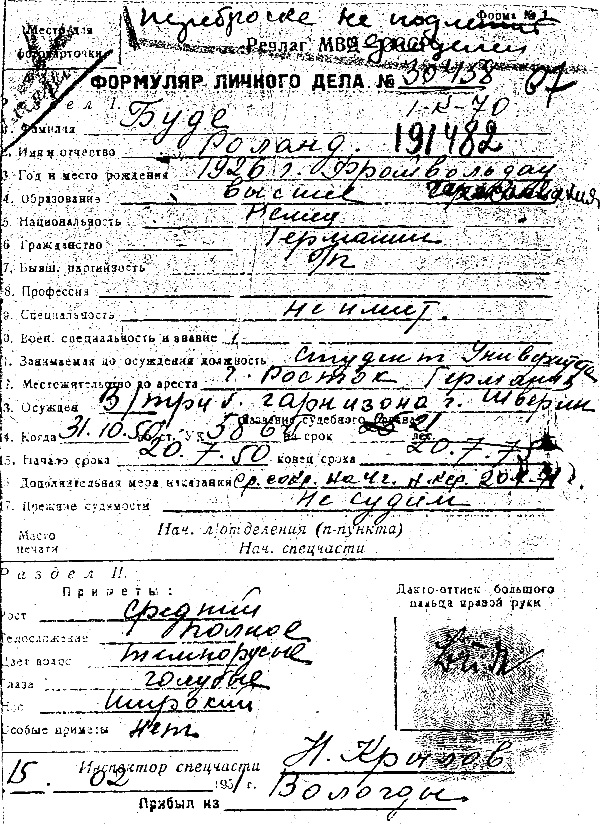 Переброске не подлежит
Форма № 1
Место для
фотокарточки
Речлаг МВД СССР
ФОРМУЛЯР ЛИЧНОГО ДЕЛА №
1-К-70
Раздел I.
1. Фамилия Буде
191482
2. Имя и отчество Роланд.
3. Год и место рождения 1926 г. Фройвольдау
4. Образование высшее
5. Национальность Немец
6. Гражданство Германии
7. Бывш. партийность б/п
8. Профессия
9. Специальность не имеет.
10. Воен. специальность и звание
11. Занимаемая до осуждения должность студент Университета
12. Местожительство до ареста г. Росток Германия
13. Осужден В/триб. гарнизона г. Шверин
название судебного органа
14. Когда 31.10.50 по ст. УК 58-6 на срок 25 лет
15. Начало срока 20.7.50 конец срока 20.7.75
16. Дополнительная мера наказания
17. Прежние судимости не судим
Место
печати
Нач. л/отделения (п-пункта)
Нач. спецчасти
Раздел II.
Приметы:
Рост средний
Телосложение полное
Цвет волос темнорусые
Глаза голубые
Нос широкий
Особые приметы нет
Дакто-оттиск большого
пальца правой руки
Инспектор спецчасти Н. Крылов
15. 02 1951 г.
Прибыл из Вологды